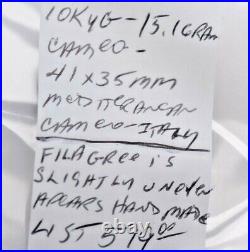 10KYG - 15.1 GRAM
CAMEO -
41 x 35 mm
MEDITERANEAN
CAMEO - ITALY
FILAGREE iS
SLIGHTLY UNEVEN
APEARS HAND MADE
LIST 579.00